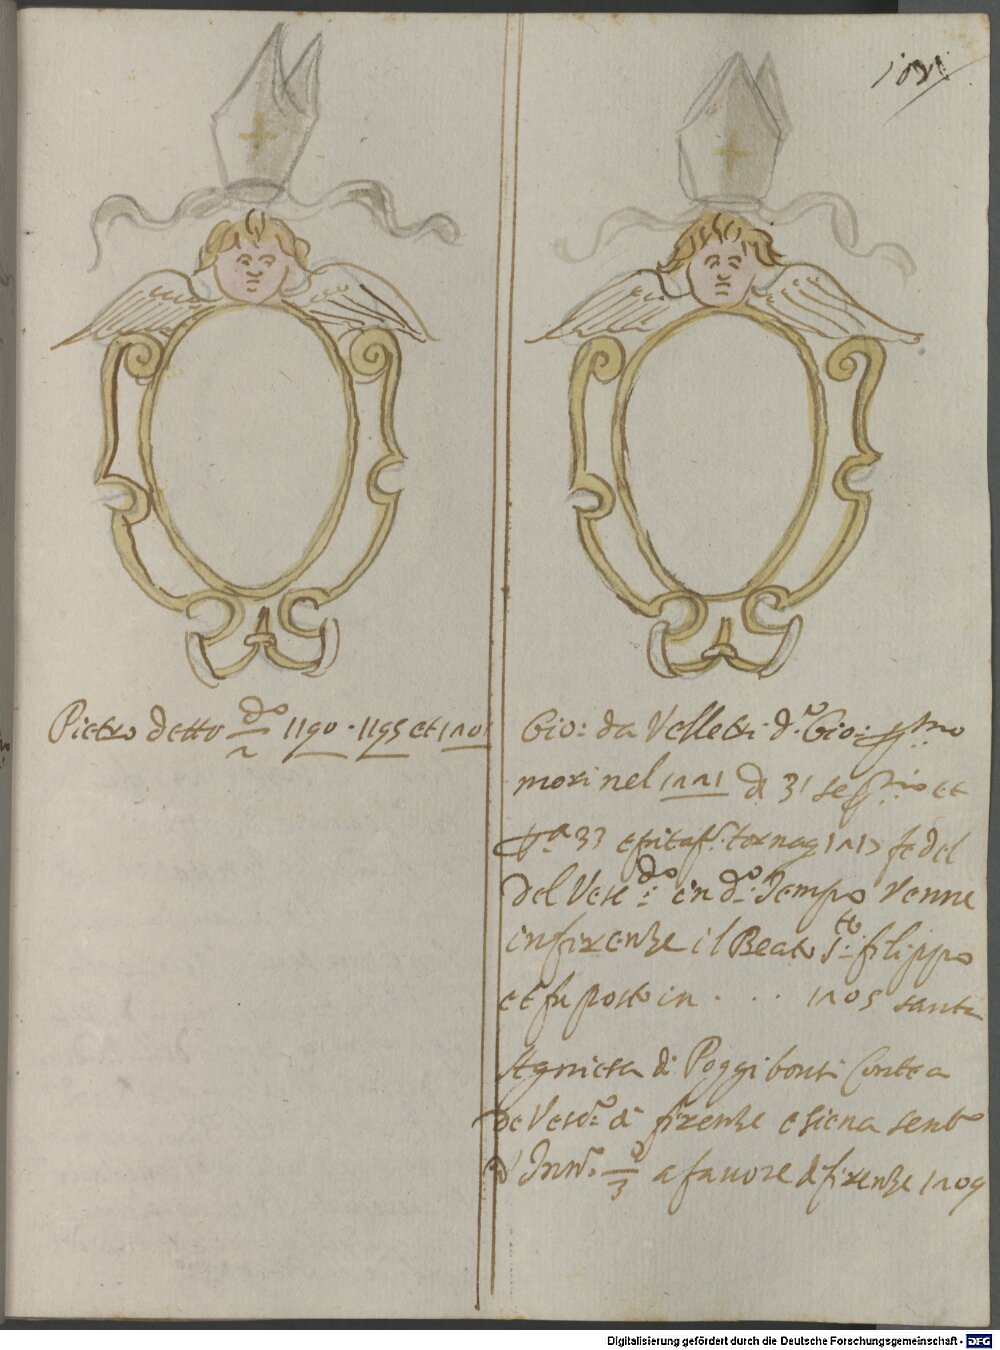 Pietro detto d.º 2 1190 · 1195 et 1201
Gio: da Velletri d.º Gio:
mori nel 1221 di 31 et
33 epitaf: torna 1217 fe del
del Vesc.do in d.º Tempo Venne
in firenze il Beato filippo
et fu posto in . . . 1205 santa
Agniesa di Poggibonsi Contea
de Vesc.º di firenze e siena sent.
Inn.º 3 a favore di firenze 1209
Digitalisierung gefördert durch die Deutsche Forschungsgemeinschaft - DFG